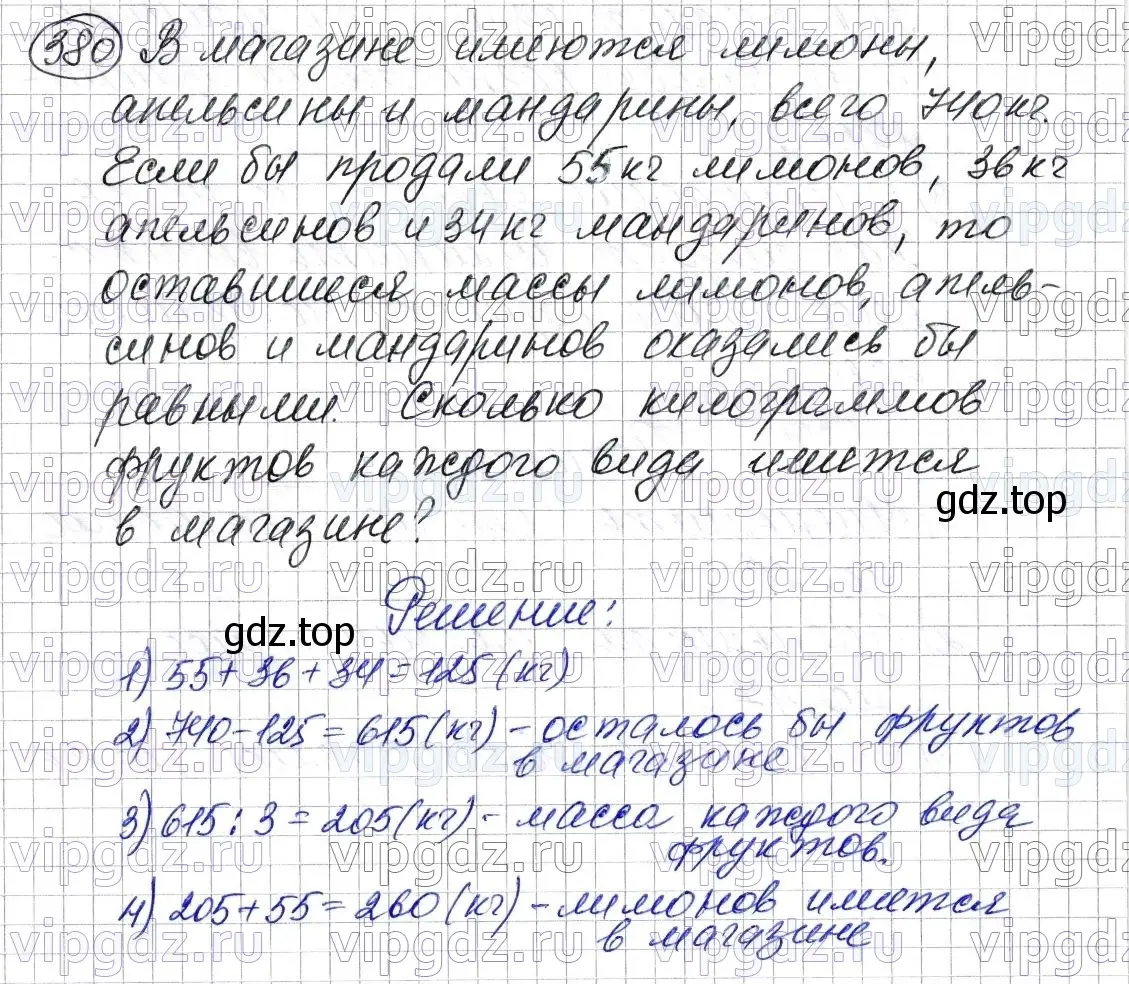 380 В магазине имеются лимоны,
апельсины и мандарины, всего 740 кг.
Если бы продали 55 кг лимонов, 36 кг
апельсинов и 34 кг мандаринов, то
оставшиеся массы лимонов, апель-
синов и мандаринов оказались бы
равными. Сколько килограммов
фруктов каждого вида имется
gdz.top
в магазине?
Решение:
gdz.top
1) 55 + 36 + 34 = 125 (кг)
2) 740 - 125 = 615 (кг) - осталось бы фруктов
в магазине
3) 615 : 3 = 205 (кг) - масса каждого вида
фруктов.
4) 205 + 55 = 260 (кг) - лимонов имется
в магазине
vipgdz.ru